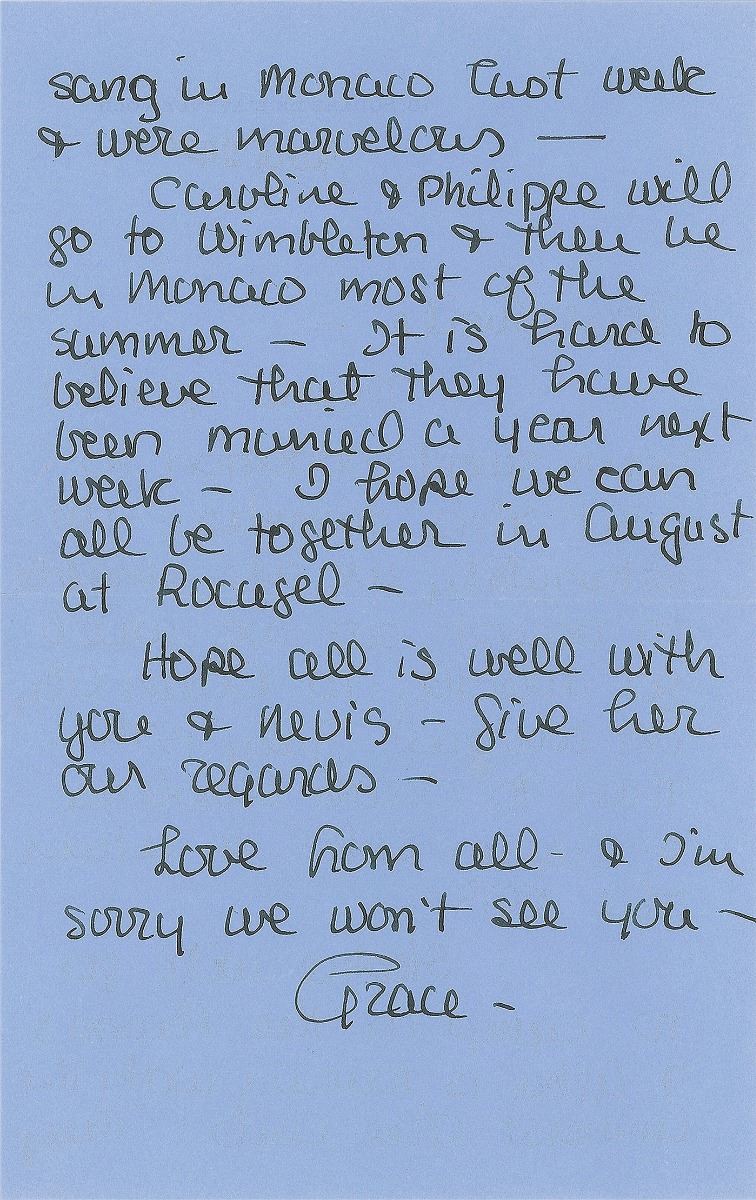 sang in Monaco last week
& were marvelous —
Caroline & Philippe will
go to Wimbleton & then be
in Monaco most of the
summer – It is hard to
believe that they have
been married a year next
week – I hope we can
all be together in August
at Rocagel –
Hope all is well with
you & Nevis – Give her
our regards –
Love from all – & I'm
sorry we won't see you –
Grace –